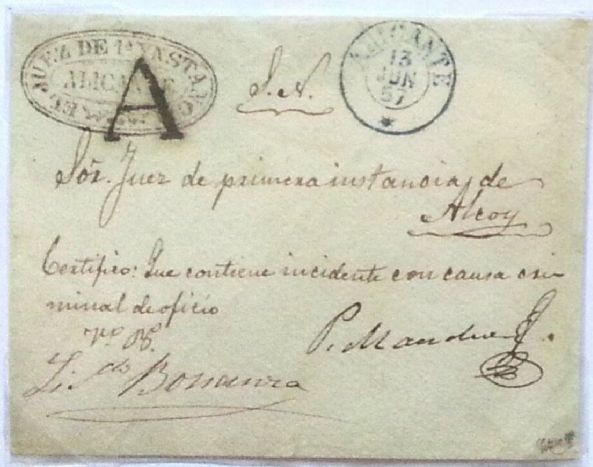 JUEZ DE 1ª YNSTANC
ALICANTE
A
S. N.
ALICANTE
13
JUN
57
Sor. Juez de primera instancia, de
Alcoy
Certifico: Que contiene incidente con causa cri-
minal de oficio
Vº. Bº.
P.